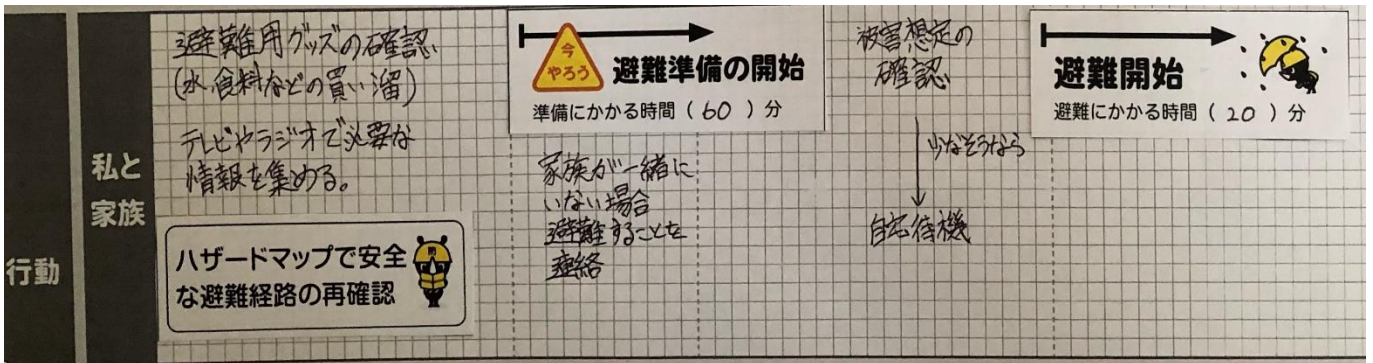 行動
私と
家族
避難用グッズの確認
(水、食料などの買い溜)
テレビやラジオで必要な
情報を集める。
ハザードマップで安全
な避難経路の再確認
今
やろう
避難準備の開始
準備にかかる時間（60）分
家族が一緒に
いない場合
避難することを
連絡
被害想定の
確認
少なそうなら
自宅待機
避難開始
避難にかかる時間（20）分